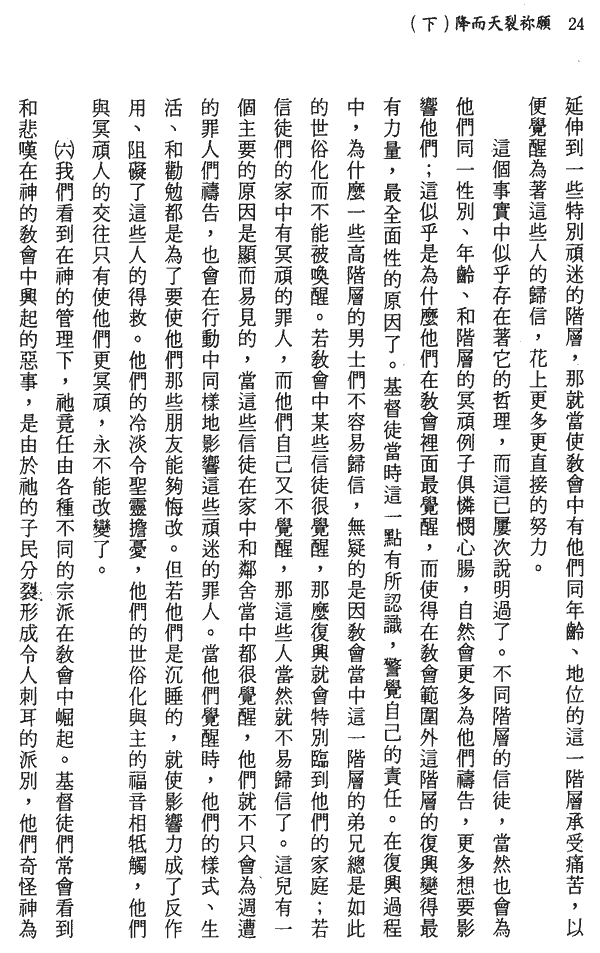 24　願祢裂天而降（下）
延伸到一些特別頑迷的階層，那就當使教會中有他們同年齡、地位的這一階層承受痛苦，以
便覺醒為著這些人的歸信，花上更多更直接的努力。
這個事實中似乎存在著它的哲理，而這已屢次說明過了。不同階層的信徒，當然也會為
他們同一性別、年齡、和階層的冥頑例子俱憐憫心腸，自然會更多為他們禱告，更多想要影
響他們；這似乎是為什麼他們在教會裡面最覺醒，而使得在教會範圍外這階層的復興變得最
有力量，最全面性的原因了。基督徒當時這一點有所認識，警覺自己的責任。在復興過程
中，為什麼一些高階層的男士們不容易歸信，無疑的是因教會當中這一階層的弟兄總是如此
的世俗化而不能被喚醒。若教會中某些信徒很覺醒，那麼復興就會特別臨到他們的家庭；若
信徒們的家中有冥頑的罪人，而他們自己又不覺醒，那這些人當然就不易歸信了。這兒有一
個主要的原因是顯而易見的，當這些信徒在家中和鄰舍當中都很覺醒，他們就不只會為週遭
的罪人們禱告，也會在行動中同樣地影響這些頑迷的罪人。當他們覺醒時，他們的樣式、生
活、和勸勉都是為了要使他們那些朋友能夠悔改。但若他們是沉睡的，就使影響力成了反作
用、阻礙了這些人的得救。他們的冷淡令聖靈擔憂，他們的世俗化與主的福音相牴觸，他們
與冥頑人的交往只有使他們更冥頑，永不能改變了。
㈥我們看到在神的管理下，祂竟任由各種不同的宗派在教會中崛起。基督徒們常會看到
和悲嘆在神的教會中興起的惡事，是由於祂的子民分裂形成令人刺耳的派別，他們奇怪神為